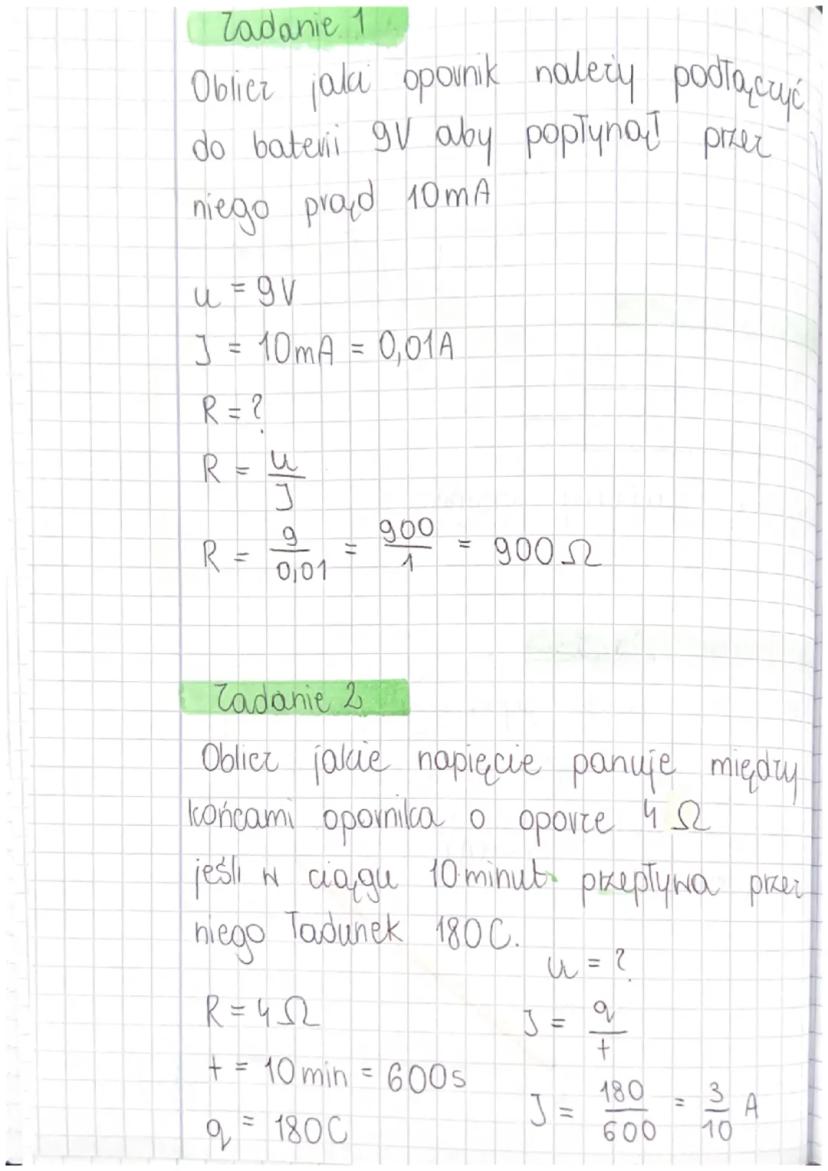 Zadanie 1
Oblicz jaki opornik należy podłączyć
do baterii 9V aby popłynął przez
niego prąd 10mA
U = 9V
I = 10mA = 0,01A
R = ?
R = U/I
R = 9/0,01 = 900/1 = 900Ω
Zadanie 2
Oblicz jakie napięcie panuje między
końcami opornika o oporze 4Ω
jeśli w ciągu 10 minut przepływa przez
niego ładunek 180C.
U = ?
R = 4Ω
I = q/t
t = 10 min = 600s
I = 180/600 = 3/10 A
q = 180C